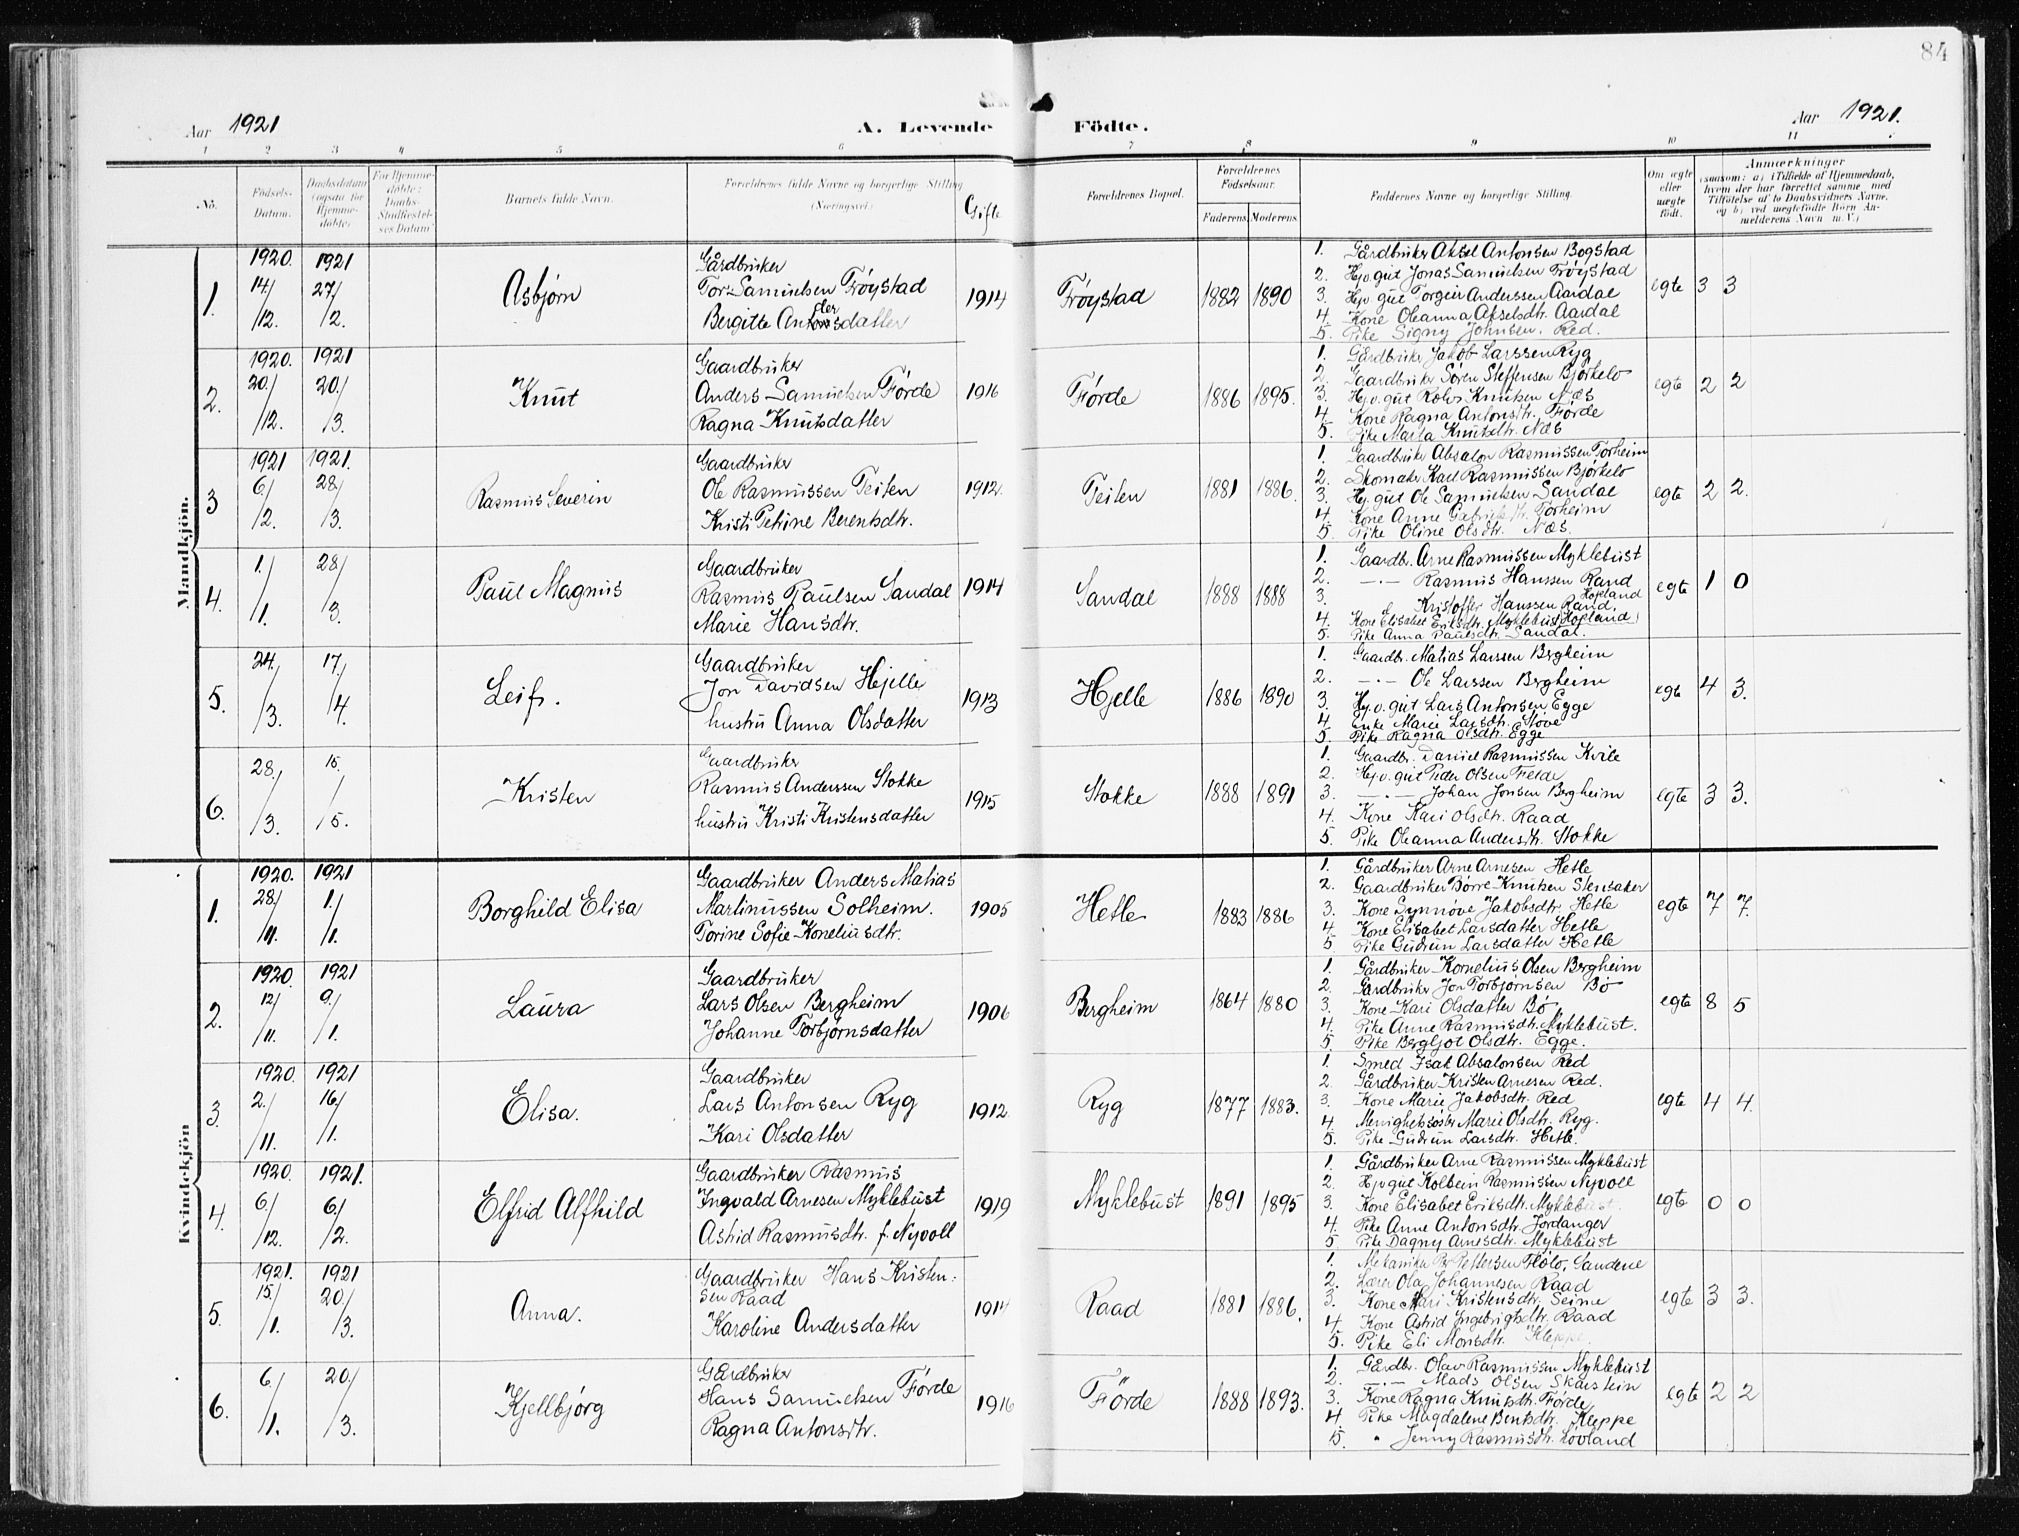 84
Aar 1921
A. Levende Födte.
Aar 1921.
1 2 3 4 5 6 7 8 9 10 11
No.
Födsels-Datum.
Daabsdatum (ogsaa for Hjemme-döbte)
For Hjemme-döbte: Daabs-Stadfæstel-ses Datum
Barnets fulde Navn.
Forældrenes fulde Navne og borgerlige Stilling (Næringsvei.)
Gifte
Forældrenes Bopæl.
Forældrenes Födselsaar.
Faderens. Moderens.
Faddernes Navne og borgerlige Stilling.
Om ægte eller uægte født.
Anmærkninger
(saasom: a) i Tilfælde af Hjemmedaab, hvem der har forrettet samme med Tilföielse af to Daabsvidners Navne, og b) ved uægtefødte Børn An-melderens Navn m. V.)
Mandkjön.
1. 1920. 14/12. 1921 27/2. Asbjørn
Gårdbruker
Tor Samuelsen Frøystad
Bergitte Andersdatter
1914 Frøystad 1882 1890
1. Gårdbruker Aksel Antonsen Bogstad
2. Hjv. gut Jonas Samuelsen Frøystad
3. Hjv gut Torgeir Anderssen Aardal
4. Kone Oleanna Akselsdtr. Aardal
5. Pike Signy Johnsen. Red.
egte 3 3
2. 1920. 20/12. 1921 20/3. Knut
Gaardbruker
Anders Samuelsen Førde
Ragna Knutsdatter
1916 Førde 1886 1895.
1. Gårdbruker Jakob Larssen Ryg
2. Gaardbruker Søren Steffensen Bjørkelo
3. Hjv. gut Rolv Knutsen Næs
4. Kone Ragna Antonsdtr. Førde
5. Pike Marta Knutsdtr. Næs
egte 2 2
3 1921 6/2. 1921. 28/3. Rasmus Severin
Gaardbruker
Ole Rasmussen Teilen
Kristi Petrine Berentsdtr.
1912. Teilen 1881 1886.
1. Gaardbruker Absalon Rasmussen Torheim
2. Skomaker Karl Rasmussen Bjørkelo
3. Hj. gut Ole Samuelsen Sandal
4. Kone Anne Gabrielsdtr. Torheim
5. Pike Oline Olsdtr. Næs.
egte 2 2.
4. 1/1. 28/3. Paul Magnus
Gaardbruker
Rasmus Paulsen Sandal
Marie Hansdtr.
1914 Sandal 1888 1888
1. Gaardbr. Arne Rasmussen Myklebust
2. —·— Rasmus Hanssen Rand
3. Kristoffer Hanssen Rand. Hopland
4. Kone Elisabet Eriksdtr. Myklebust (Hopland)
5. Pike Anna Paulsdtr. Sandal.
egte 1 0
5. 24/3. 17/4. Leif.
Gaardbruker
Jon Davidsen Hjelle
hustru Anna Olsdatter
1913 Hjelle 1886 1890
1. Gaardbr. Matias Larssen Bergheim
2. —·— Ole Larssen Bergheim
3. Hj.v. gut Lars Antonsen Egge
4. Enke Marie Larsdtr. Støve
5. Pike Ragna Olsdtr. Egge
egte 4 3.
6. 28/3. 15/5. Kristen
Gaardbruker
Rasmus Anderssen Stokke
hustru Kristi Kristensdatter
1915 Stokke 1888 1891
1. Gaardbr. Daniel Rasmussen Kvile
2. Hj.v. gut Peder Olsen Feide
3. —·— Johan Jonsen Bergheim
4. Kone Kari Olsdtr. Raad
5. Pike Oleanna Andersdtr. Stokke
egte 3 3.
Kvindekjön
1. 1920. 28/11. 1921 1/1. Borghild Elisa
Gaardbruker Anders Matias
Martinussen Solheim.
Torine Sofie Korneliusdtr.
1905 Hetle 1883 1886
1. Gårdbruker Arne Arnesen Hetle
2. Gaardbruker Børre Knutsen Stensaker
3. Kone Synnøve Jakobsdtr. Hetle
4. Kone Elisabet Larsdatter Hetle
5 Pike Gudrun Larsdatter Hetle
egte 7 7.
2. 1920 12/11. 1921 9/1. Laura
Gaardbruker
Lars Olsen Bergheim
Johanne Torbjørnsdatter
1906 Bergheim 1864 1880
1. Gårdbruker Kornelius Olsen Bergheim
2. Gårdbruker Jon Torbjørnsen Bø
3. Kone Kari Olsdatter Bø
4. Pike Anne Rasmusdtr. Myklebust.
5 Pike Bergljot Olsdtr. Egge.
egte 8 5
3. 1920. 2/11. 1921 16/1. Elisa.
Gaardbruker
Lars Antonsen Ryg
Kari Olsdatter
1912 Ryg 1877 1883.
1. Smed Isak Absalonsen Red
2. Gårdbruker Kristen Arnesen Red.
3. Kone Marie Jakobsdtr. Red
4. Menighetssøster Marie Olsdtr. Ryg.
5. Pike Gudrun Larsdtr. Hetle.
egte 4 4.
4. 1920. 6/12. 1921. 6/2. Elfrid Alfhild
Gaardbruker Rasmus
Ingvald Arnesen Myklebust
Astrid Rasmusdtr. f. Nyvoll
1919 Myklebust 1891 1895
1. Gårdbruker Arne Rasmussen Myklebust
2. Hjv gut Kolbein Rasmussen Nyvoll
3. Kone Elisabet Eriksdtr. Myklebust
4. Pike Anne Antonsdtr. Jordanger
5. Pike Dagny Arnesdtr. Myklebust
egte 0 0
5. 1921. 15/1. 1921 20/3. Anna.
Gaardbruker Hans Kristen-
sen Raad
Karoline Andersdatter
1914 Raad 1881 1886.
1. Mekaniker Per Pettersen Flølo, Sandene
2. Lærer Ola Johannesen Raad
3. Kone Mari Kristensdtr. Seime
4. Kone Astrid Ingebrigtsdtr. Raad
5. Pike Eli Monsdtr. Kleppe
egte 3 3.
6. 6/1. 20/3. Kjellbjørg
Gårdbruker
Hans Samuelsen Førde
Ragna Antonsdtr.
1916 Förde 1888 1893.
1. Gårdbr. Olav Rasmussen Myklebust
2. —·— Mads Olsen Skarstein
3. Kone Ragna Knutsdtr. Førde
4. Pike Magdalene Bentsdtr. Kleppe
5. " Jenny Rasmusdtr. Løvland
egte 2 2